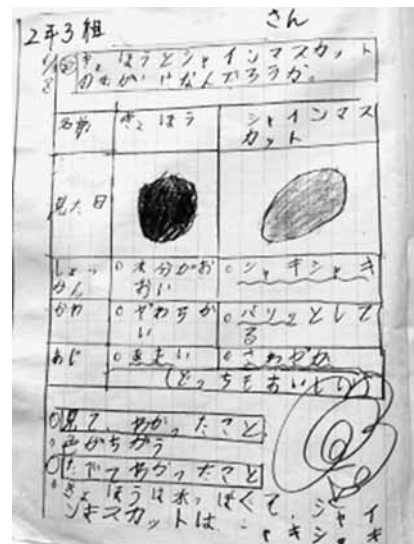 2年3組 さん
きょほうとシャインマスカット
のちがいはなんだろうか。
名前 きょほう シャインマスカット
見た目
しょっかん 水分がおおい シャキシャキ
かわ やわらかい パリッとしてる
あじ さわやか
(どっちもおいしい)
見て、わかったこと
色がちがう
たべてわかったこと
きょほうは水っぽくて、シャイ
ンマスカットはシャキシャキ